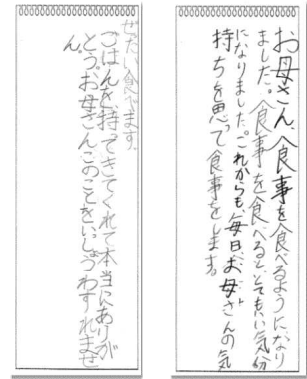 お母さん、食事を食べるようになり
ました。食事を食べるととてもいい気分
になりました。これからも毎日お母さんの気
持ちを思って食事をします。
ぜたい食べます。
ごはんを持ってきてくれて本当にありが
とう。お母さんこのことをいっしょうわすれませ
ん。